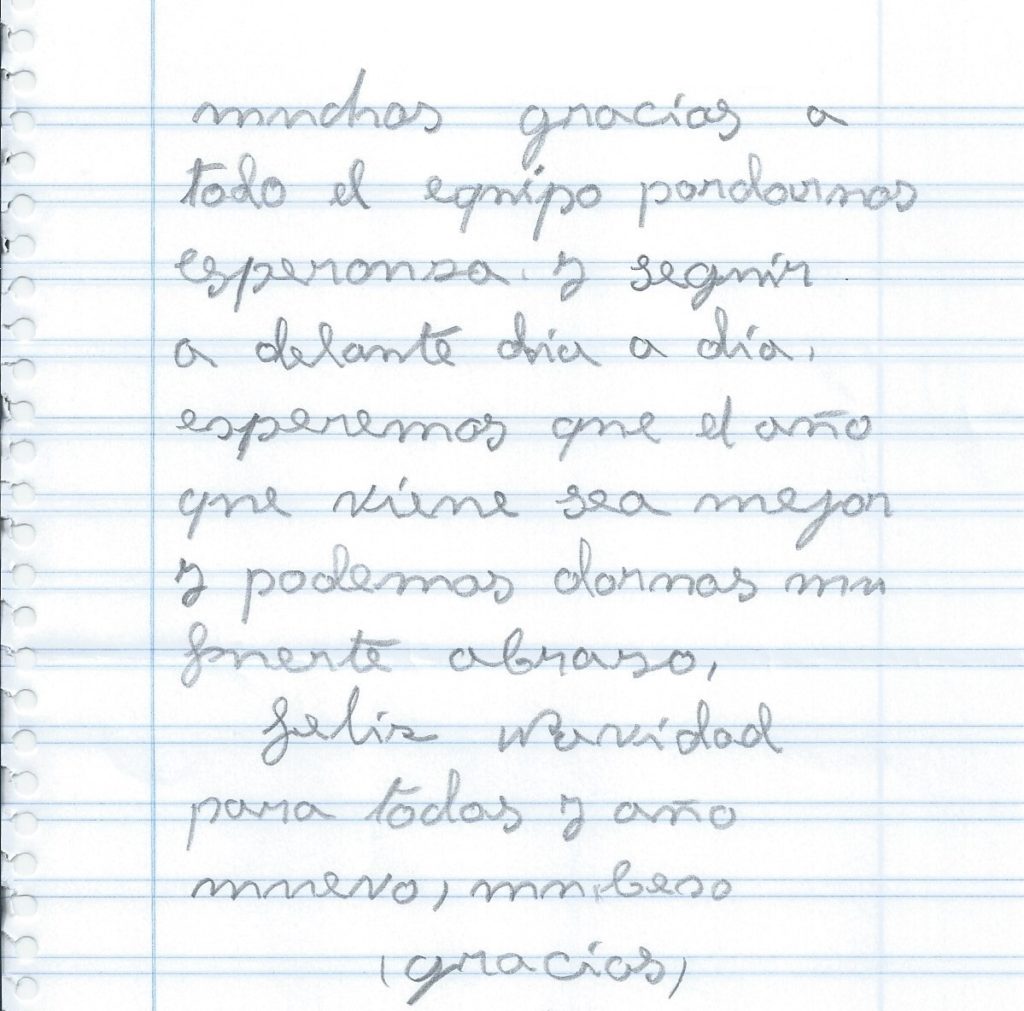 muchas gracias a
todo el equipo pordarnos
esperanza y seguir
a delante dia a dia.
esperemos que el año
que viene sea mejor
y podemos darnos un
fuerte abrazo,
feliz navidad
para todos y año
nuevo, un beso
(gracias)